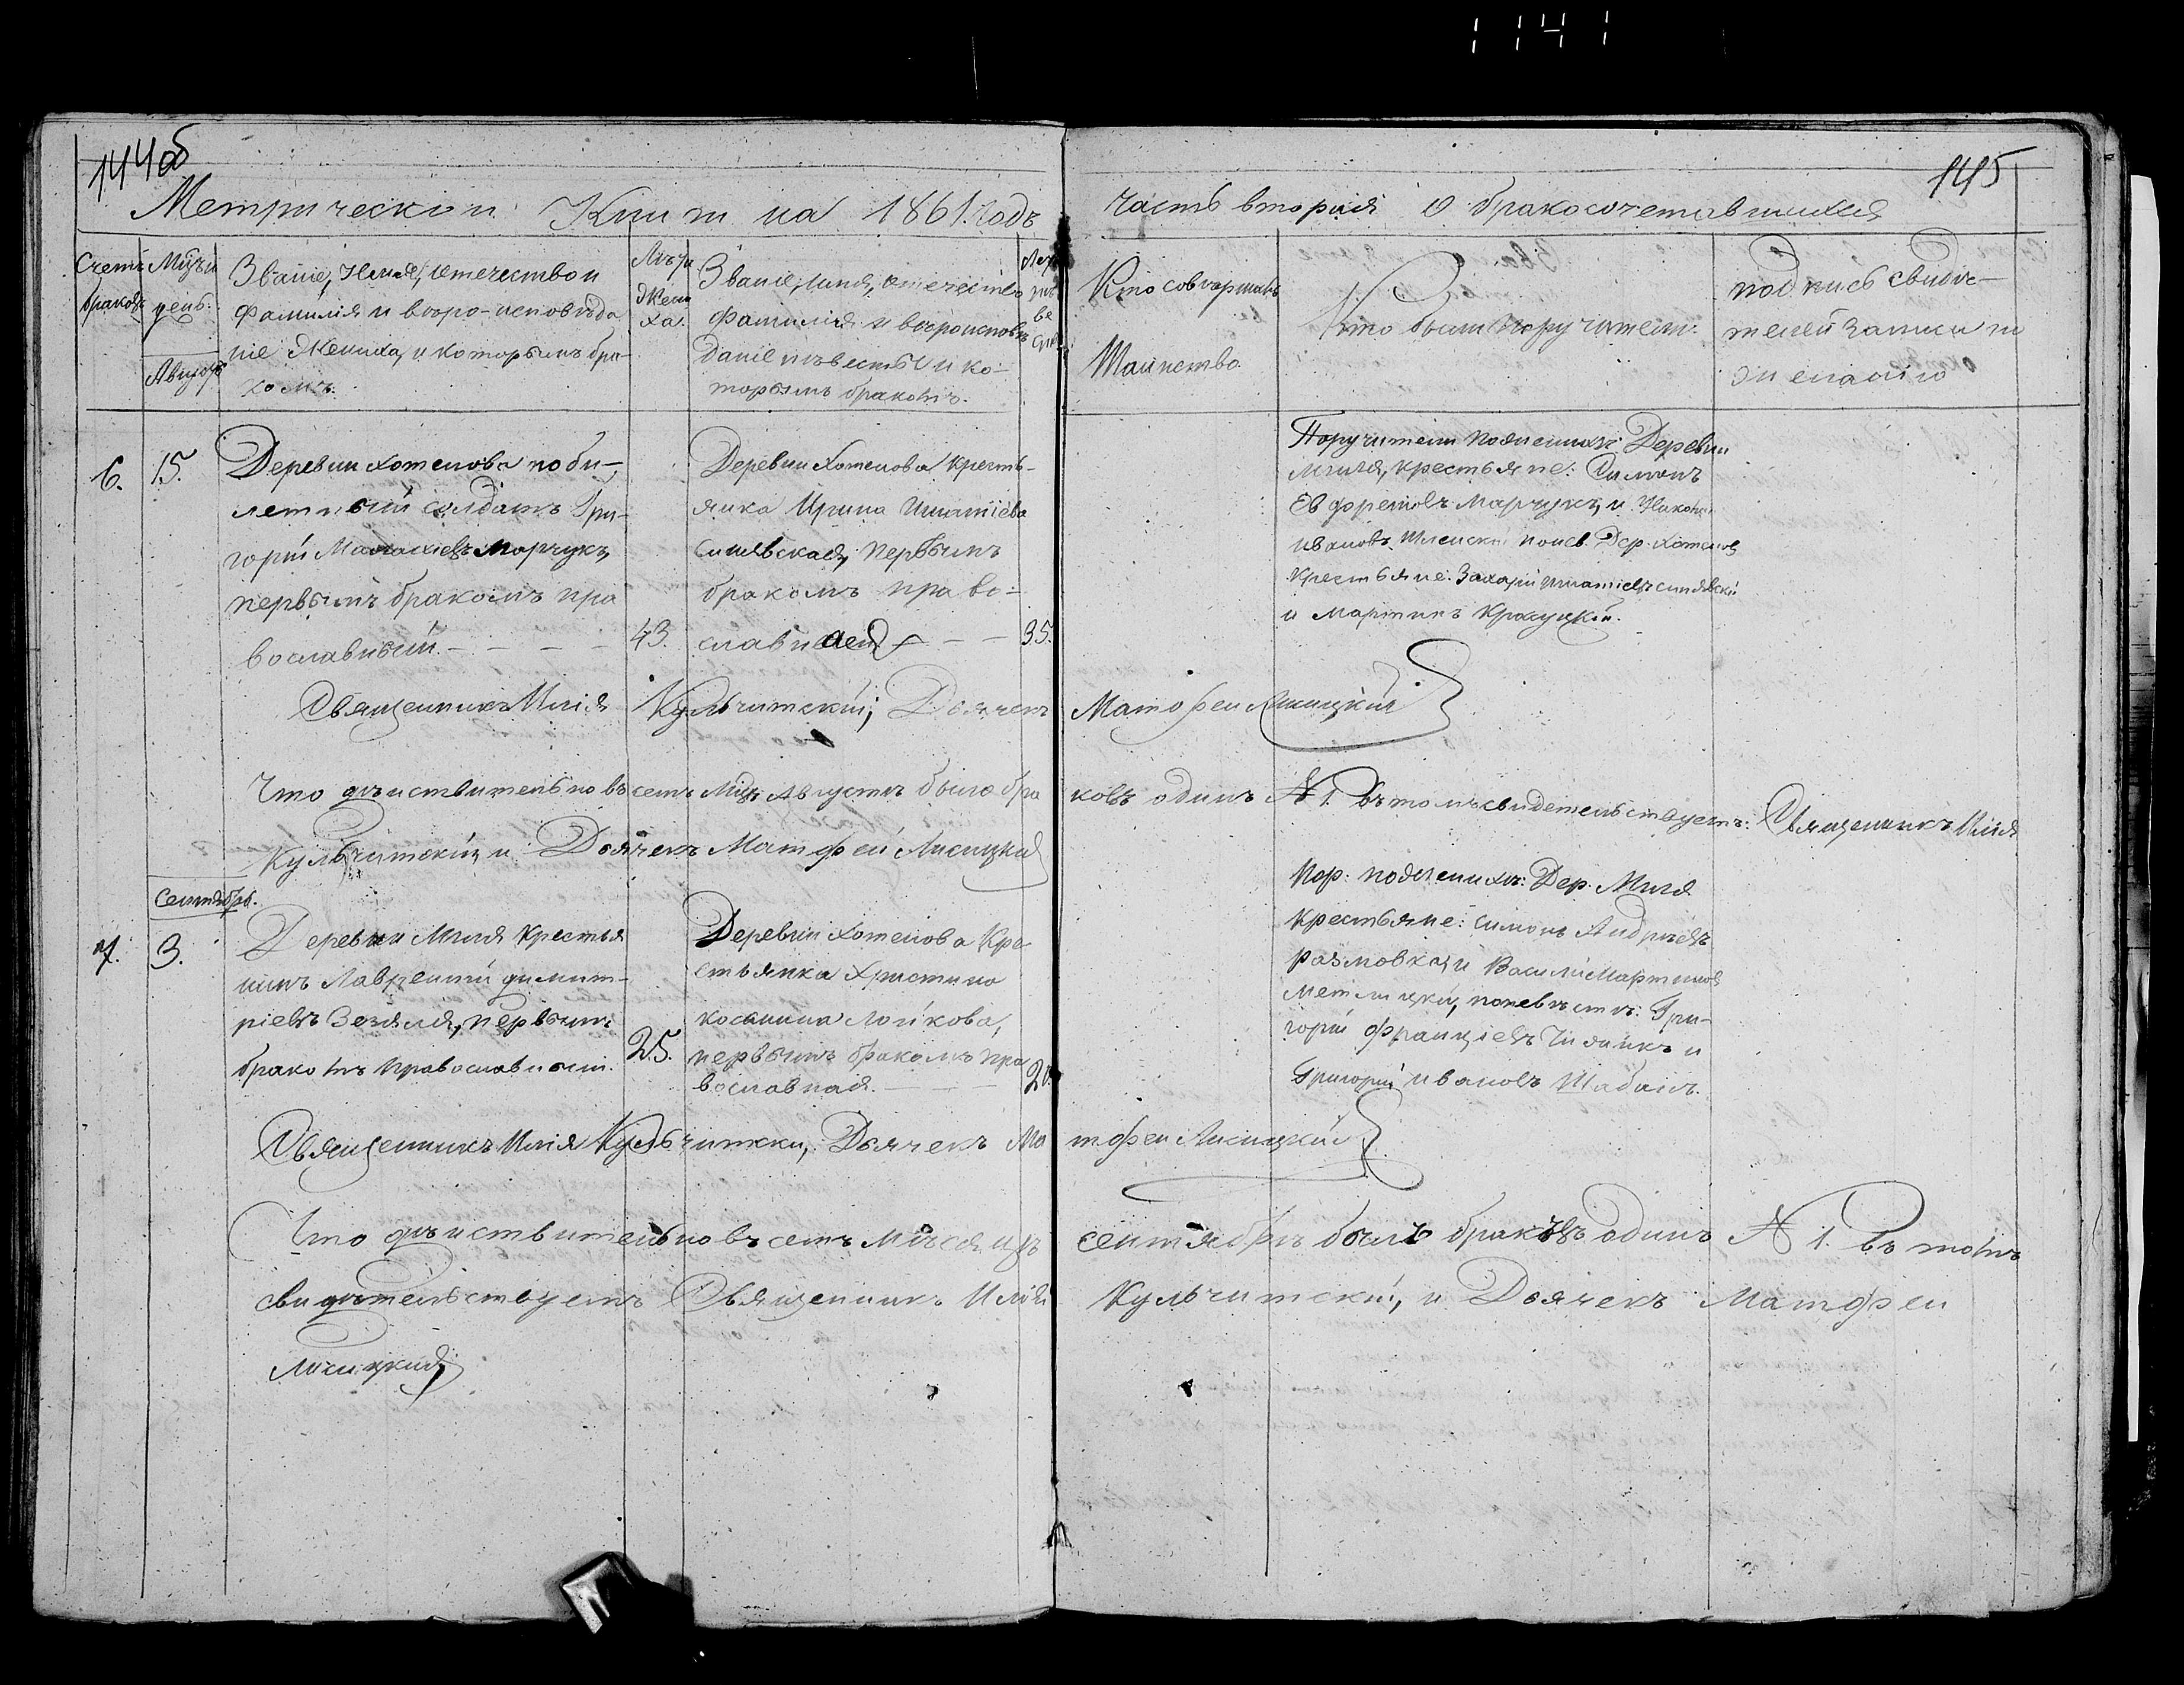 144об
145
Метрической Книги на 1861. Годъ
Часть вторая о бракосочетавшихся
Счетъ браковъ
Мцъ и день.
Августъ
Званіе, Имя, отечество и
фамилія и вѣро-исповѣда
ніе Жениха, и которымъ бра-
комъ.
Лѣта Жениха.
Званіе, имя, отечество
фамилія и вѣроисповѣ
даніе невесты и ко-
торымъ бракомъ.
Кто совершалъ
Таинство.
Кто были поручители.
подпись свидѣ-
телей записи по
желанію
6.
15.
Деревни Хотенова по би-
летный солдатъ Гри-
горій Марчукъ,
первымъ бракомъ пра
вославный.
43.
Деревни Хотенова крестъ-
янка Ирина Игнатіева
Синявская, первымъ
бракомъ право-
славная
35.
Поручители по женихѣ: Деревни
крестьяне: Симонъ
Марчукъ, и
Ивановъ по нев. Дер. Хотенов
Крестьяне: Захарій Игнатіевъ Синявскій
и Мартинъ
Священникъ Илія Кульчитскій; Дьячекъ Матофей Лисицкій
Что дѣиствительно въ семъ Мцѣ Августѣ было бра ковъ одинъ № 1. въ томъ свидетельствуетъ: Священникъ Илія
Кульчитскій, и Дьячекъ Матфей Лисицкій
Сентябрь.
7.
3.
Деревни Крестья
нинъ Лаврентій Димит-
ріевъ первымъ
бракомъ православный.
25.
Деревни Хотенова Кре
стьянка Христина
первымъ бракомъ пра
вославная.
20.
Пор: по женихѣ: Дер.
Крестьяне: Симонъ Андрѣевъ
и Василій Мартиновъ
по невѣстѣ: Гри-
горій и
Григорій Ивановъ Шабанъ.
Священникъ Илія Кульчитски, Дьячекъ Ма тофей Лисицкій
Что дѣиствительно въ семъ Мѣсяцѣ сентябрѣ былъ браковъ одинъ № 1. въ томъ
свидѣтельствуетъ Священникъ Илія Кульчитскій, и Дьячекъ Матфей
Лисицкій